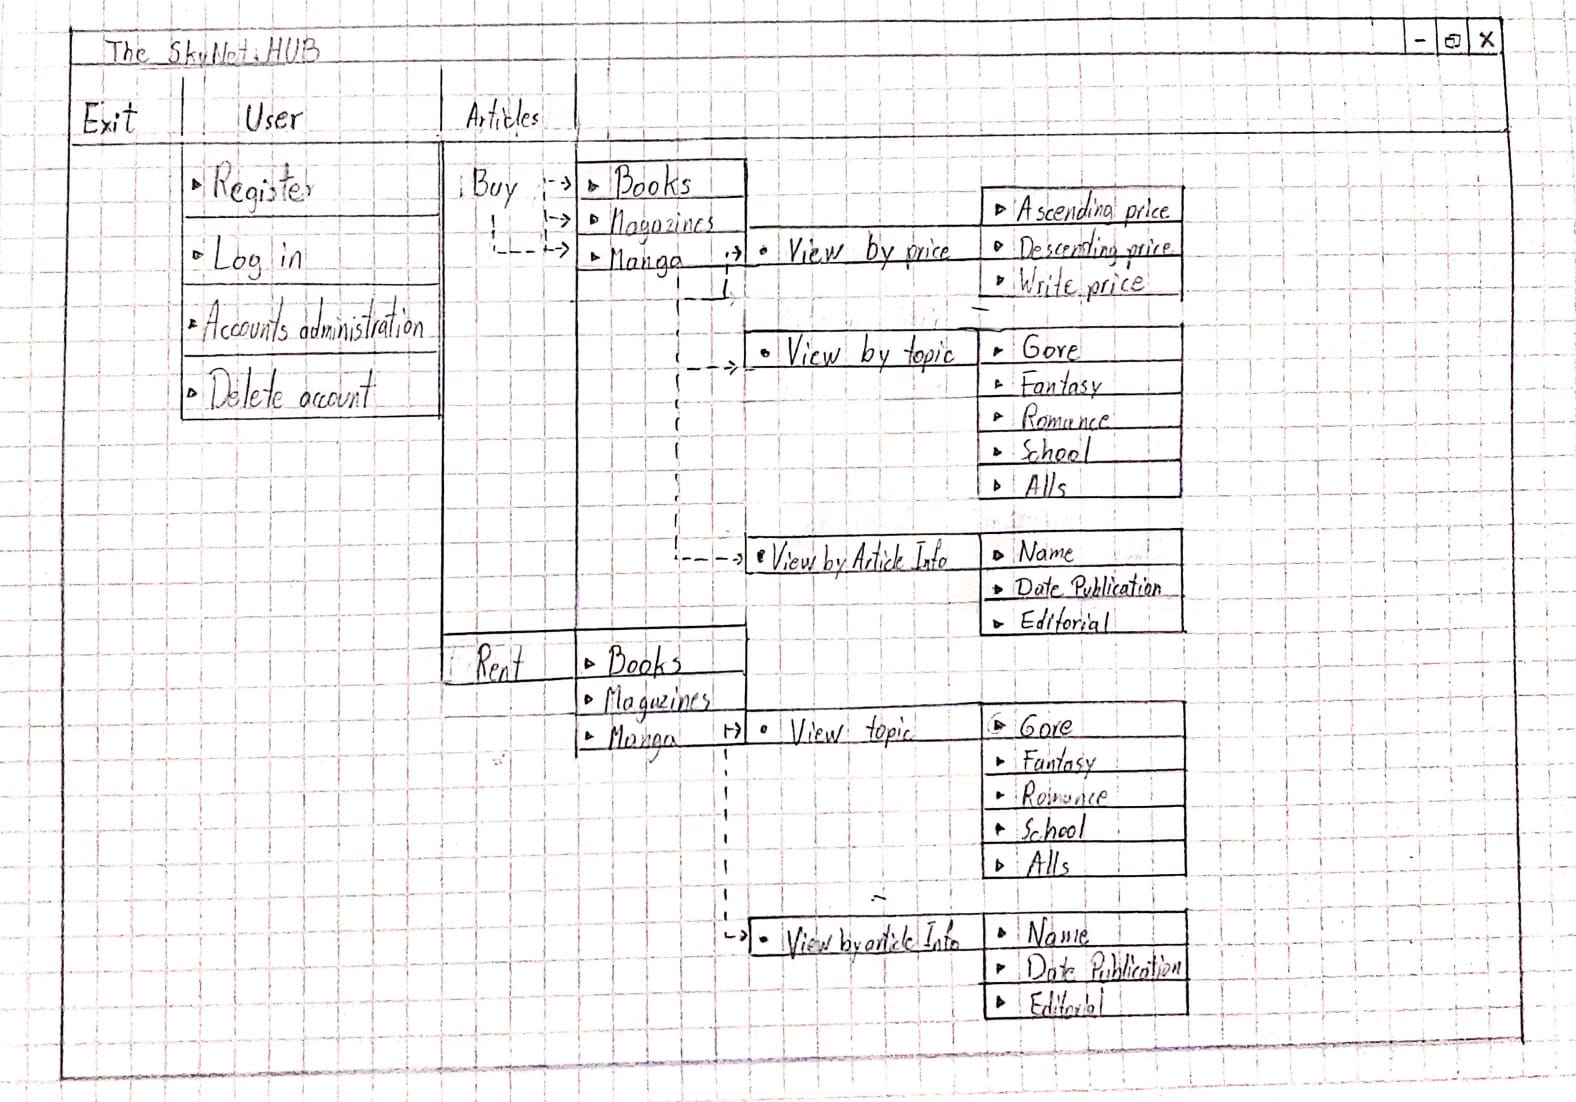 The SkyNet.HUB
Exit User Articles
Register
Log in
Accounts administration
Delete account
Buy
Books
Magazines
Manga
View by price
Ascending price
Descending price
Write price
View by topic
Gore
Fantasy
Romance
School
Alls
View by Article Info
Name
Date Publication
Editorial
Rent
Books
Magazines
Manga
View topic
Gore
Fantasy
Romance
School
Alls
View by article Info
Name
Date Publication
Editorial